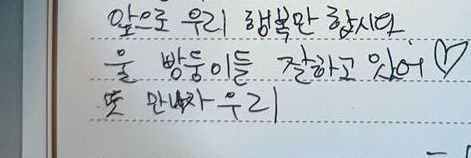 앞으로 우리 행복만 합시다
울 방둥이들 잘하고 있어♡
또 만나자 우리